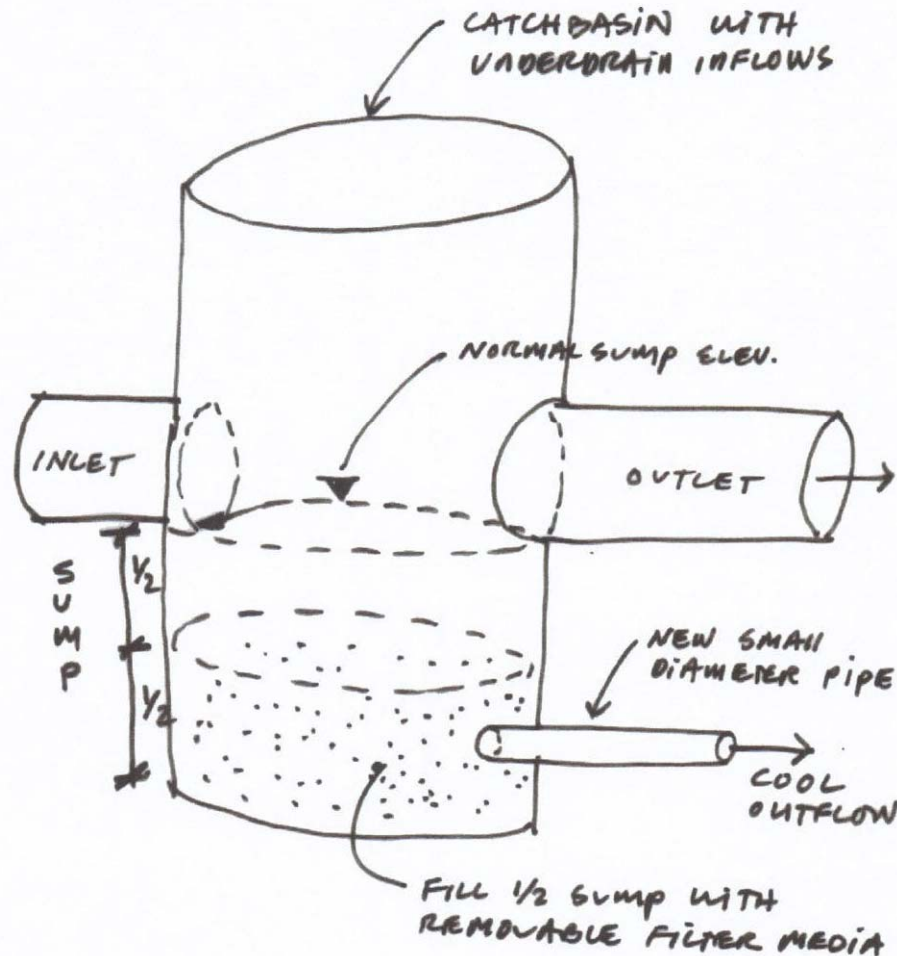 CATCHBASIN WITH
UNDERDRAIN INFLOWS
NORMAL SUMP ELEV.
INLET
OUTLET
SUMP
1/2
1/2
NEW SMALL
DIAMETER PIPE
COOL
OUTFLOW
FILL 1/2 SUMP WITH
REMOVABLE FILTER MEDIA